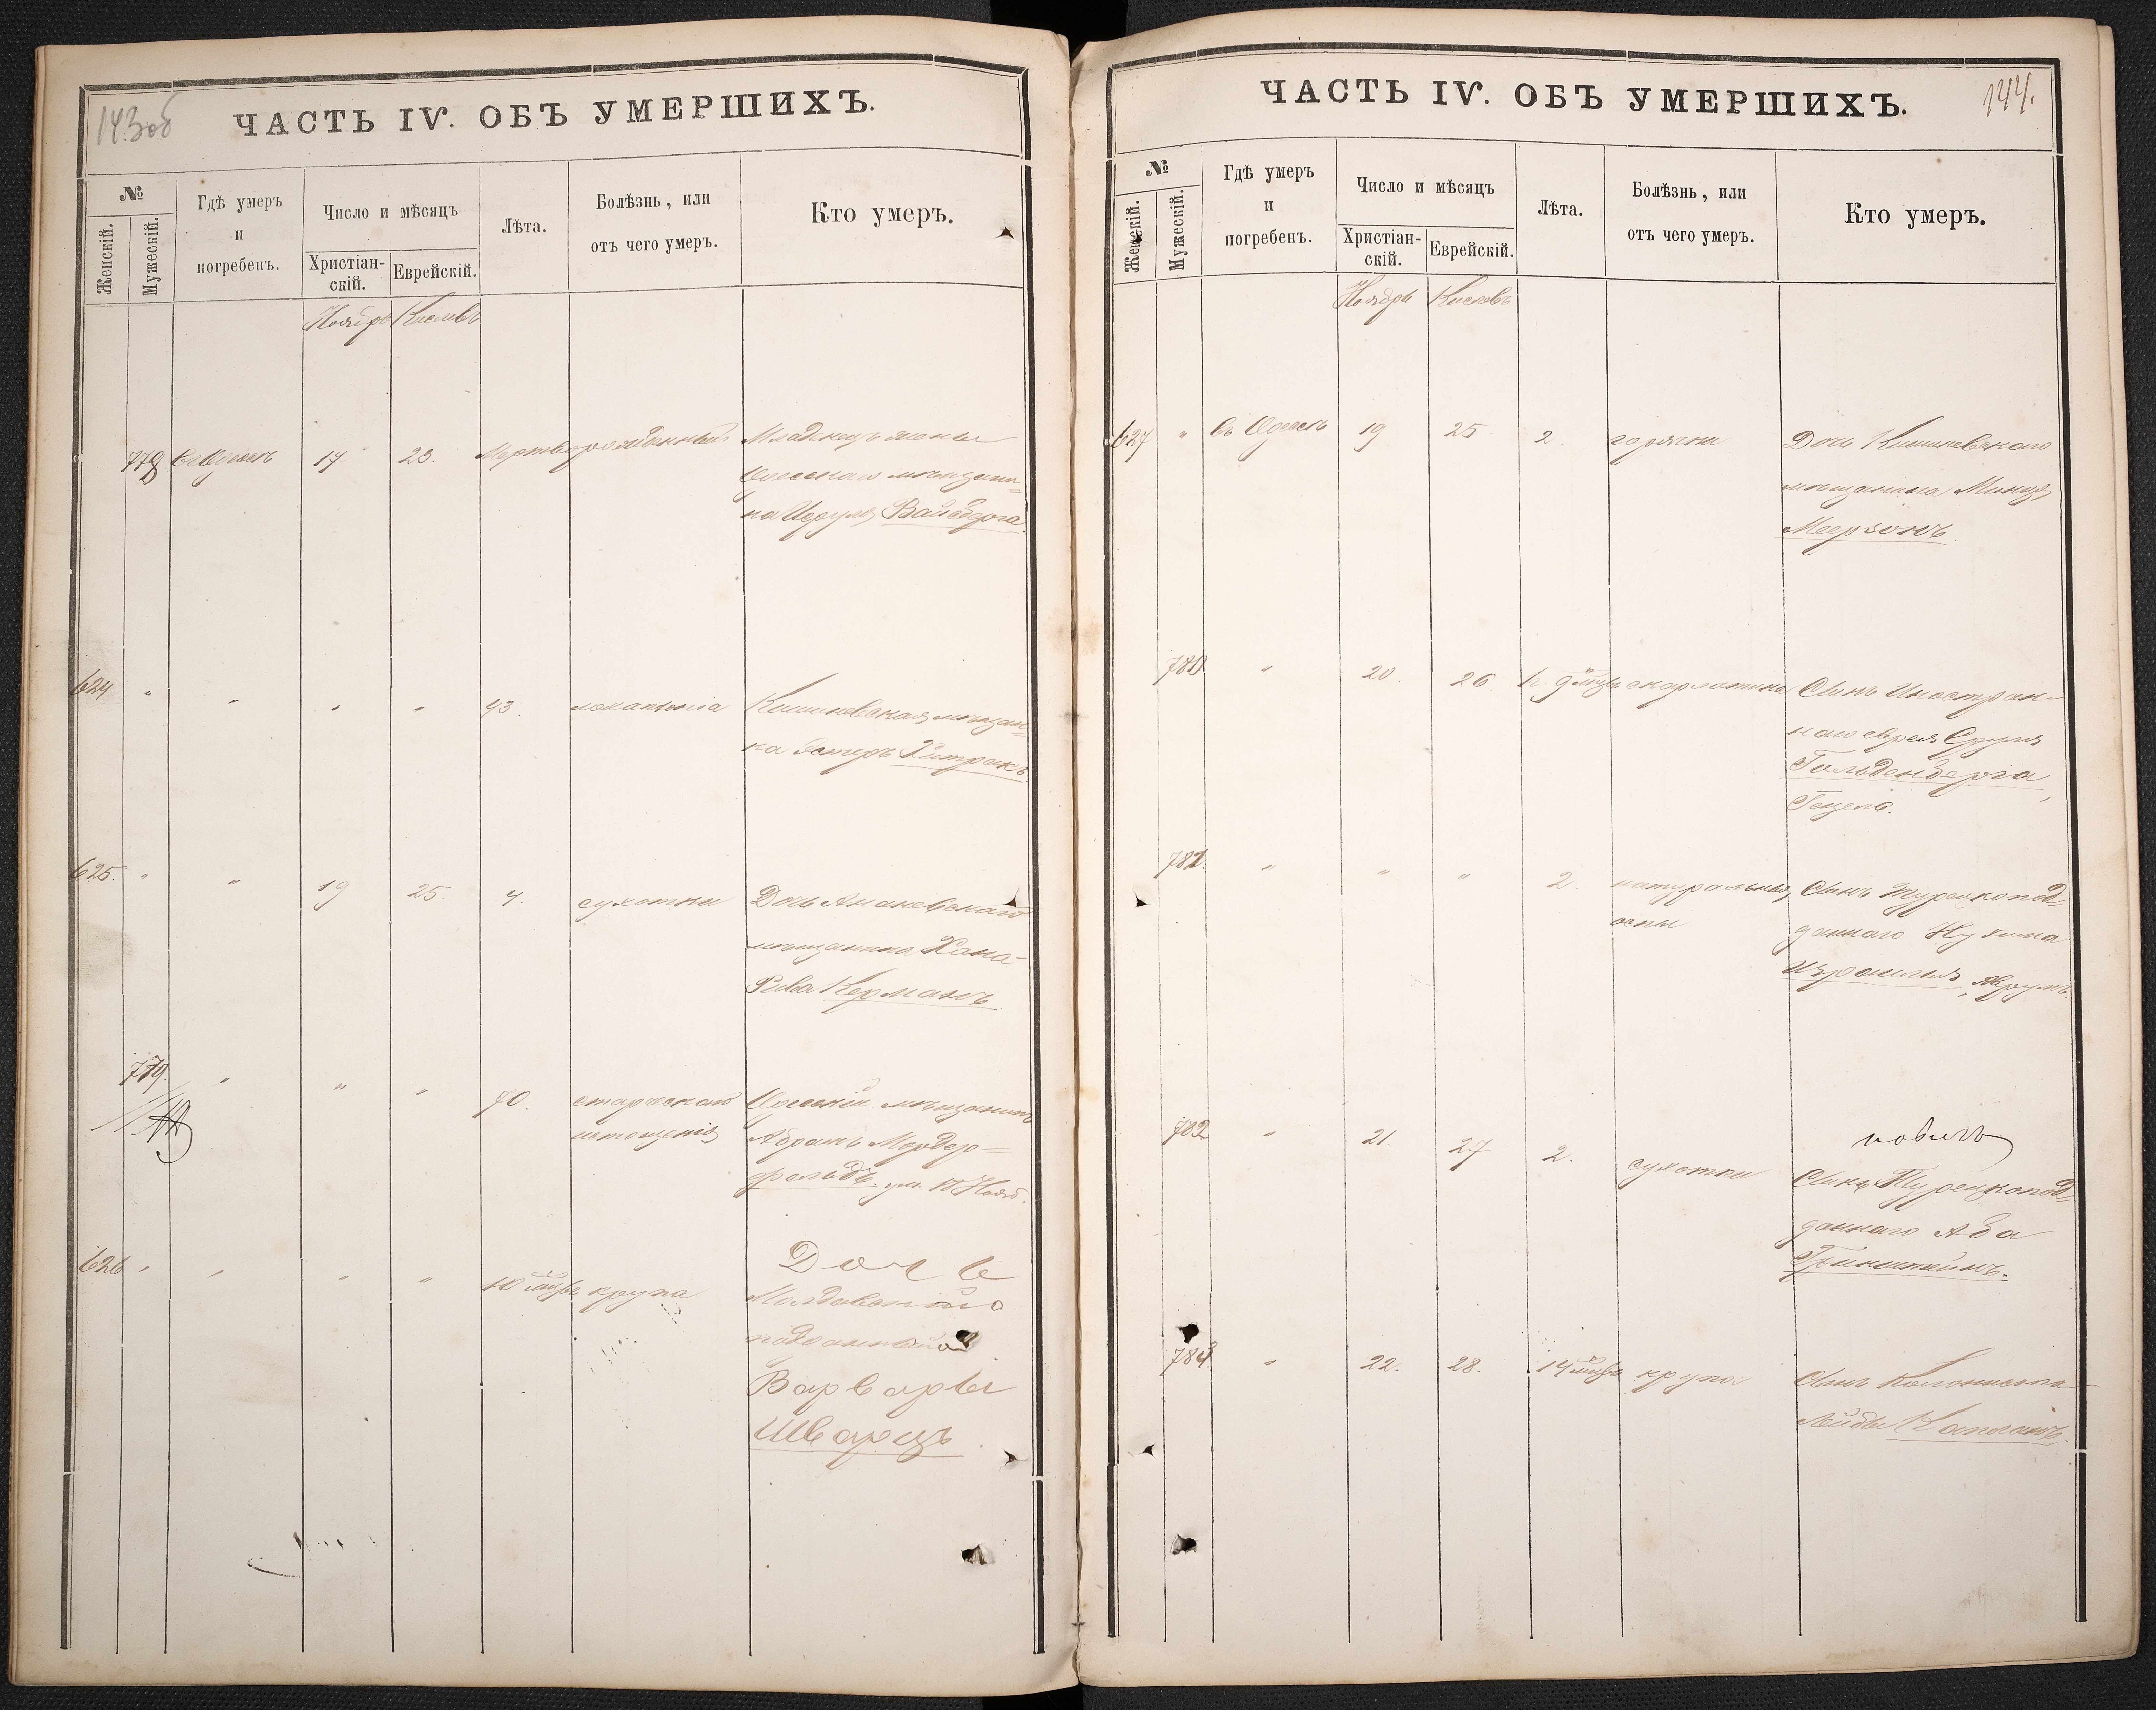 143об
ЧАСТЬ IV. ОБЪ УМЕРШИХЪ.
№
Женскій.
Мужескій.
Гдѣ умеръ
и
погребенъ.
Число и мѣсяцъ
Христіан-
скій.
Еврейскій.
Лѣта.
Болѣзнь, или
отъ чего умеръ.
Кто умеръ.
Ноябрь Кислевъ
778 въ Одессѣ 17 23. Мертворожденный Младенецъ жены
Одесскаго мѣщани-
на Израиля Вайсберга.
624 " " " " 43.
Кишиневская мѣщан-
ка Эстеръ Хитракъ
625. " " 19 25. 4. сухотки Дочь Ананьевскаго
мѣщанина Хана-
Рива Керманъ
779. " " " 70. старческаго Одесскій мѣщанинъ
истощенія Абрамъ Мордер-
фельдъ. ум. 18 Нояб.
626 " " " " 10 мѣс. крупа Дочь
Молдавскаго
Варвары
Шварцъ.
144.
ЧАСТЬ IV. ОБЪ УМЕРШИХЪ.
№
Женскій.
Мужескій.
Гдѣ умеръ
и
погребенъ.
Число и мѣсяцъ
Христіан-
скій.
Еврейскій.
Лѣта.
Болѣзнь, или
отъ чего умеръ.
Кто умеръ.
Ноябрь Кислевъ
627 " въ Одессѣ 19 25 2. горячки Дочь Кишиневскаго
мѣщанина
Меерзонъ.
780. " 20. 26. скарлатина Сынъ Иностран-
наго еврея Сруля
Гольденберга,
Гецель.
781. " " " 2. натуральная Сынъ Турецкопод-
осны даннаго Нухима
Израиля, Сруль
782 " 21. 27 2. сухотки
Сынъ Турецкопод-
даннаго Аба
Гринштейнъ.
784. " 22. 28. 14 мѣс. крупа Сынъ Колониста
Лейбы Капланъ.